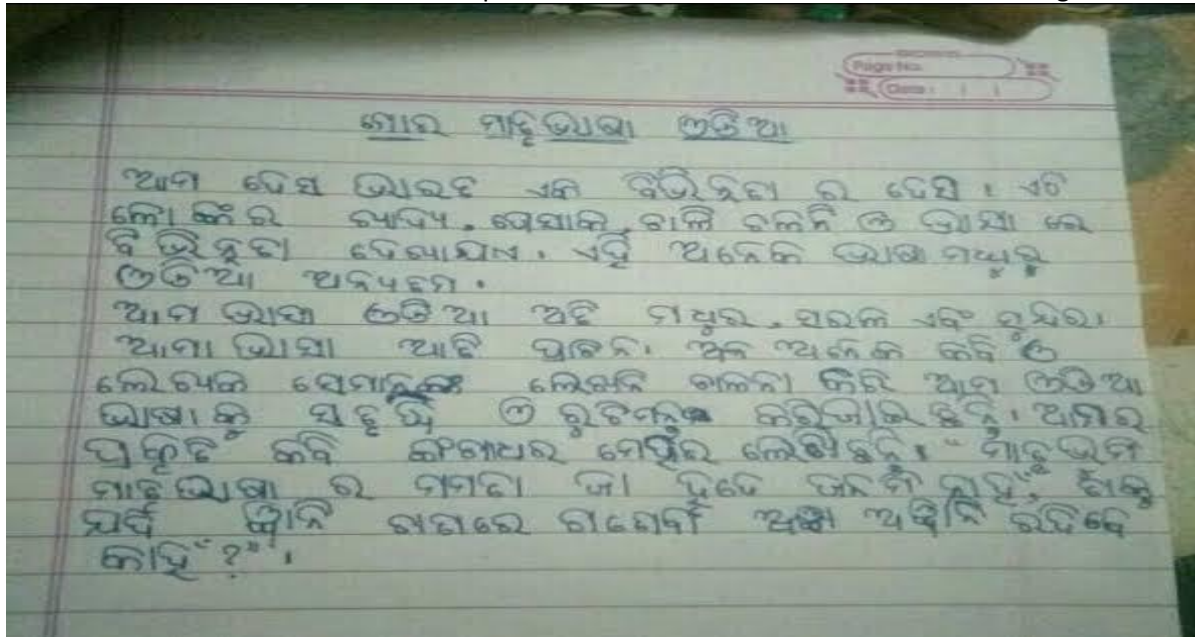 Page No.
Date:
ମୋର ମାତୃଭାଷା ଓଡିଆ
ଆମ ଦେଶ ଭାରତ ଏକ ବିଭିନ୍ନତା ର ଦେଶ । ଏଠି
ଲୋକଂର ଖାଦ୍ୟ, ପୋଷାକ, ଚାଲି ଚଳନି ଓ ଭାଷା ରେ
ବିଭିନ୍ନତା ଦେଖାଯାଏ । ଏହି ଅନେକ ଭାଷା ମଧ୍ୟରୁ
ଓଡିଆ ଅନ୍ୟତମ ।
ଆମ ଭାଷା ଓଡିଆ ଅତି ମଧୁର, ସରଳ ଏବଂ ସୁନ୍ଦର।
ଆମା ଭାଷା ଆଟି ପ୍ରାଚୀନ। ଅନେକ କବି ଓ
ଲେଖକ ସେମାନଙ୍କ ଲେଖନି ଚାଳନା କରି ଆମ ଓଡିଆ
ଭାଷା କୁ ସମୃଦ୍ଧି ଓ କରିଜାଇ ଛନ୍ତି। ଆମର
ପ୍ରକୃତି କବି ଗଂଗାଧର ମେହେର ଲେଖିଛନ୍ତି। "ମାତୃଭୂମି
ମାତୃଭାଷା ର ମମତା ଜା ହୃଦେ ଜନମି ନାହିଁ, ତାକୁ
ଯଦି ଜ୍ଞାନି ଗଣରେ ଗଣିବା ଅଜ୍ଞାନି ରହିବେ
କାହିଁ ?" ।